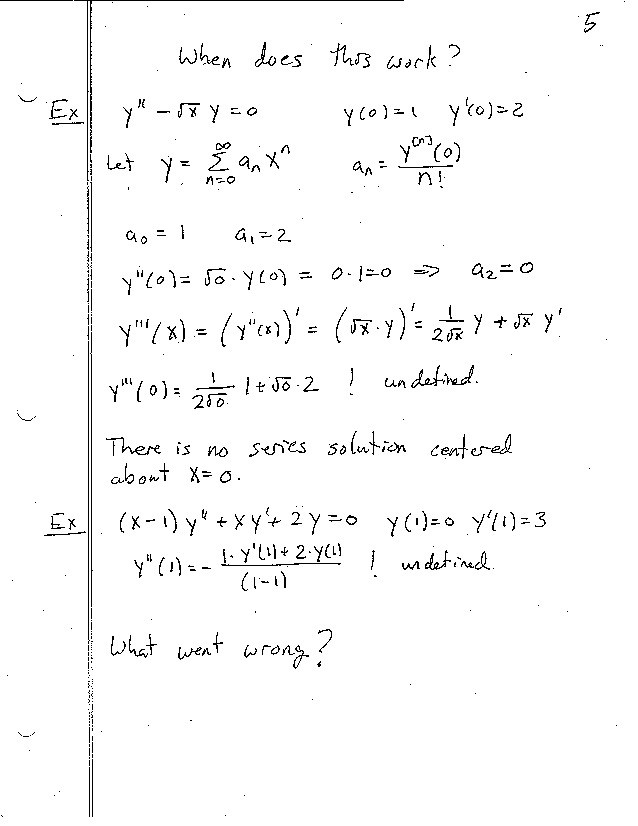 5
When does this work?
Ex y'' - √x y = 0 y(0) = 1 y'(0) = 2
Let y = ∑_{n=0}^{∞} a_n x^n a_n = y^{[n]}(0) / n!
a_0 = 1 a_1 = 2
y''(0) = √0 · y(0) = 0·1 = 0 => a_2 = 0
y'''(x) = (y''(x))' = (√x · y)' = 1/(2√x) y + √x y'
y'''(0) = 1/(2√0) 1 + √0 · 2 ! undefined.
There is no series solution centered
about x = 0.
Ex (x-1) y'' + x y' + 2 y = 0 y(1) = 0 y'(1) = 3
y''(1) = - (1· y'(1) + 2· y(1)) / (1-1) ! undefined.
What went wrong?